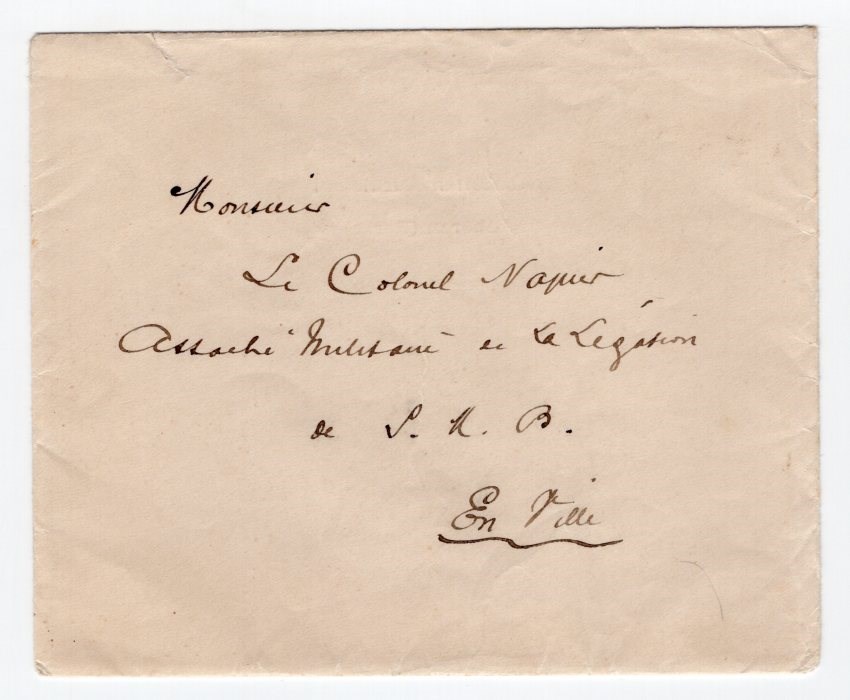 Monsieur
Le Colonel Napier
Attaché Militaire de La Légation
de S. M. B.
En Ville